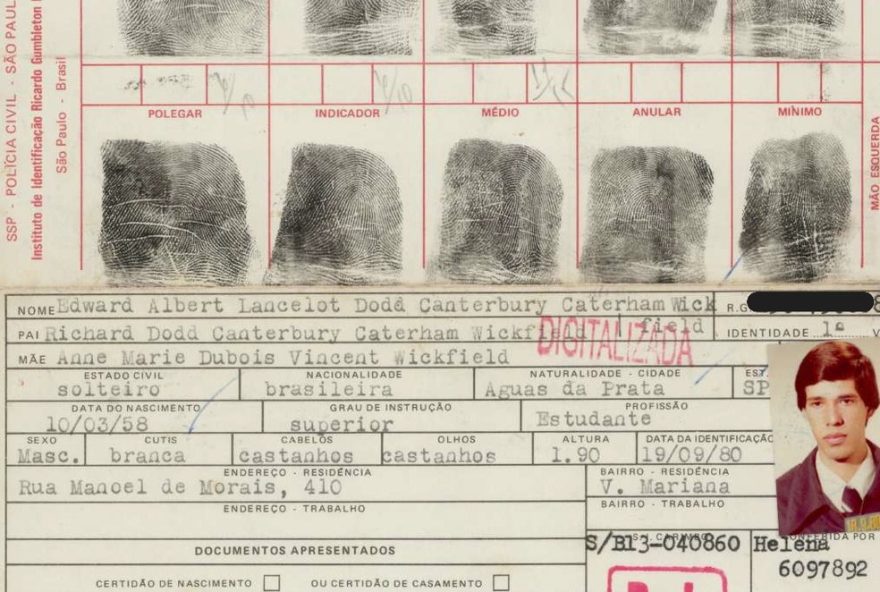 SSP - POLÍCIA CIVIL - SÃO PAUL
Instituto de Identificação Ricardo Gumbleton
São Paulo - Brasil
POLEGAR INDICADOR MÉDIO ANULAR MÍNIMO
MÃO ESQUERDA
NOME Edward Albert Lancelot Dodd Canterbury Caterham Wick R.G
field
PAI Richard Dodd Canterbury Caterham Wickfield IDENTIDADE 1ª V
DIGITALIZADA
MÃE Anne Marie Dubois Vincent Wickfield
ESTADO CIVIL NACIONALIDADE NATURALIDADE - CIDADE EST.
solteiro brasileira Aguas da Prata SP
DATA DO NASCIMENTO GRAU DE INSTRUÇÃO PROFISSÃO
10/03/58 superior Estudante
SEXO CUTIS CABELOS OLHOS ALTURA DATA DA IDENTIFICAÇÃO
Masc. branca castanhos castanhos 1.90 19/09/80
ENDEREÇO - RESIDÊNCIA BAIRRO - RESIDÊNCIA
Rua Manoel de Morais, 410 V. Mariana
ENDEREÇO - TRABALHO BAIRRO - TRABALHO
DOCUMENTOS APRESENTADOS
S/B13-040860 Helena
CONFERIDA POR
6097892
CERTIDÃO DE NASCIMENTO OU CERTIDÃO DE CASAMENTO